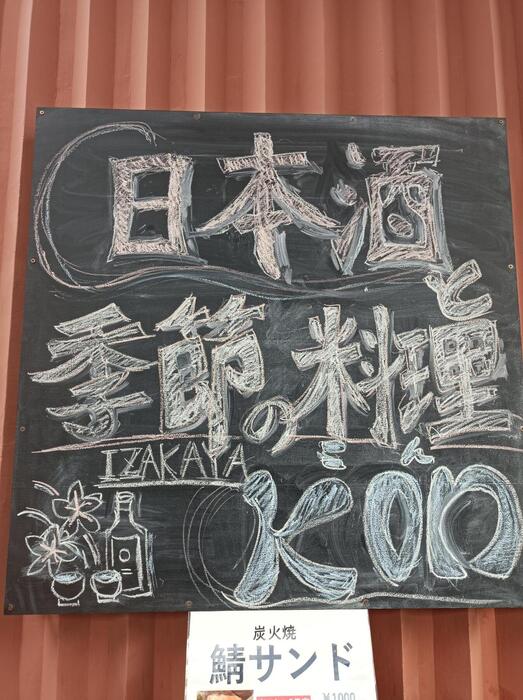 日本酒
と
季節の料理
IZAKAYA
こん
Kon
炭火焼
鯖サンド
¥1000